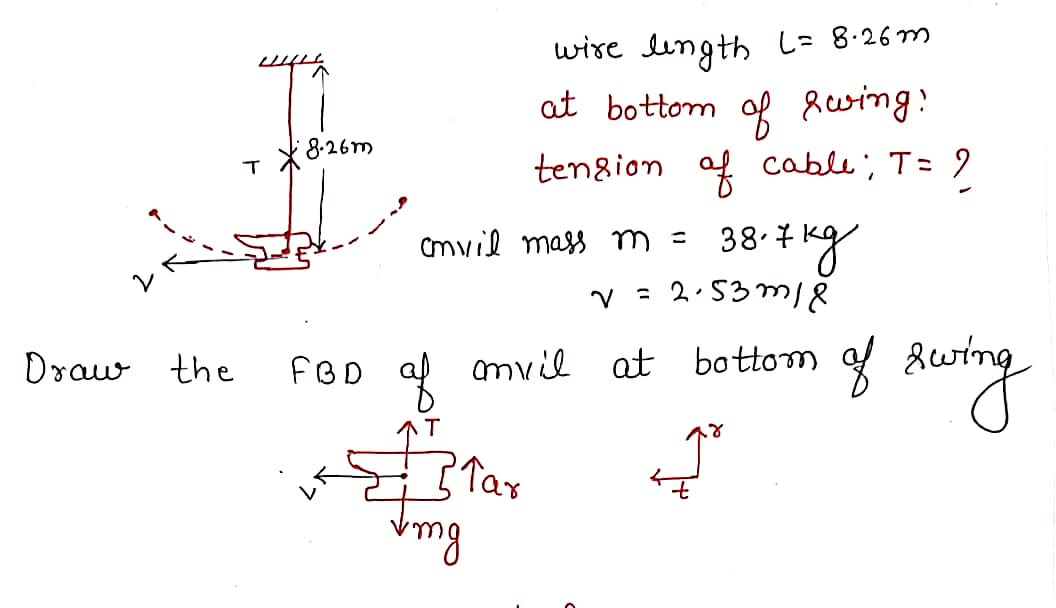 wire length L= 8.26m
at bottom of swing:
8.26m
T
tension of cable; T= ?
anvil mass m = 38.7kg
V
v = 2.53m/s
Draw the FBD of anvil at bottom of swing
T
r
ar
V
t
mg